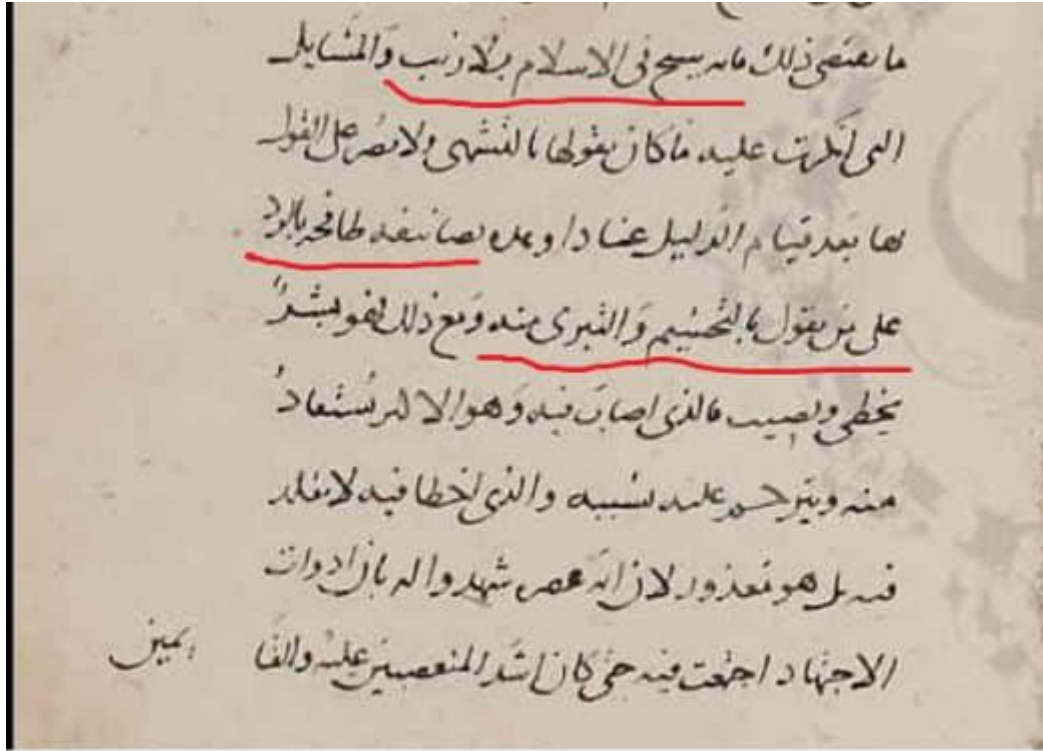 ما يقتضى ذلك فانه شيخ فى الاسلام بلا ريب والمسايل
التى انكرت عليه ما كان يقولها بالتشهى ولا يصر على القول
بها بعد قيام الدليل عنادا وهذه تصانيفه طافحة بالرد
على من يقول بالتجسيم والتبرى منه ومع ذلك فهو بشر
يخطى ويصيب فالذى اصاب فيه وهو الاكثر يستفاد
منه ويترحم عليه بسببه والذى اخطا فيه لا يقلد
فيه بل هو معذور لان ايمة عصره شهدوا له بان ادوات
الاجتهاد اجتمعت فيه حتى كان اشد المتعصبين عليه والقا
يمين